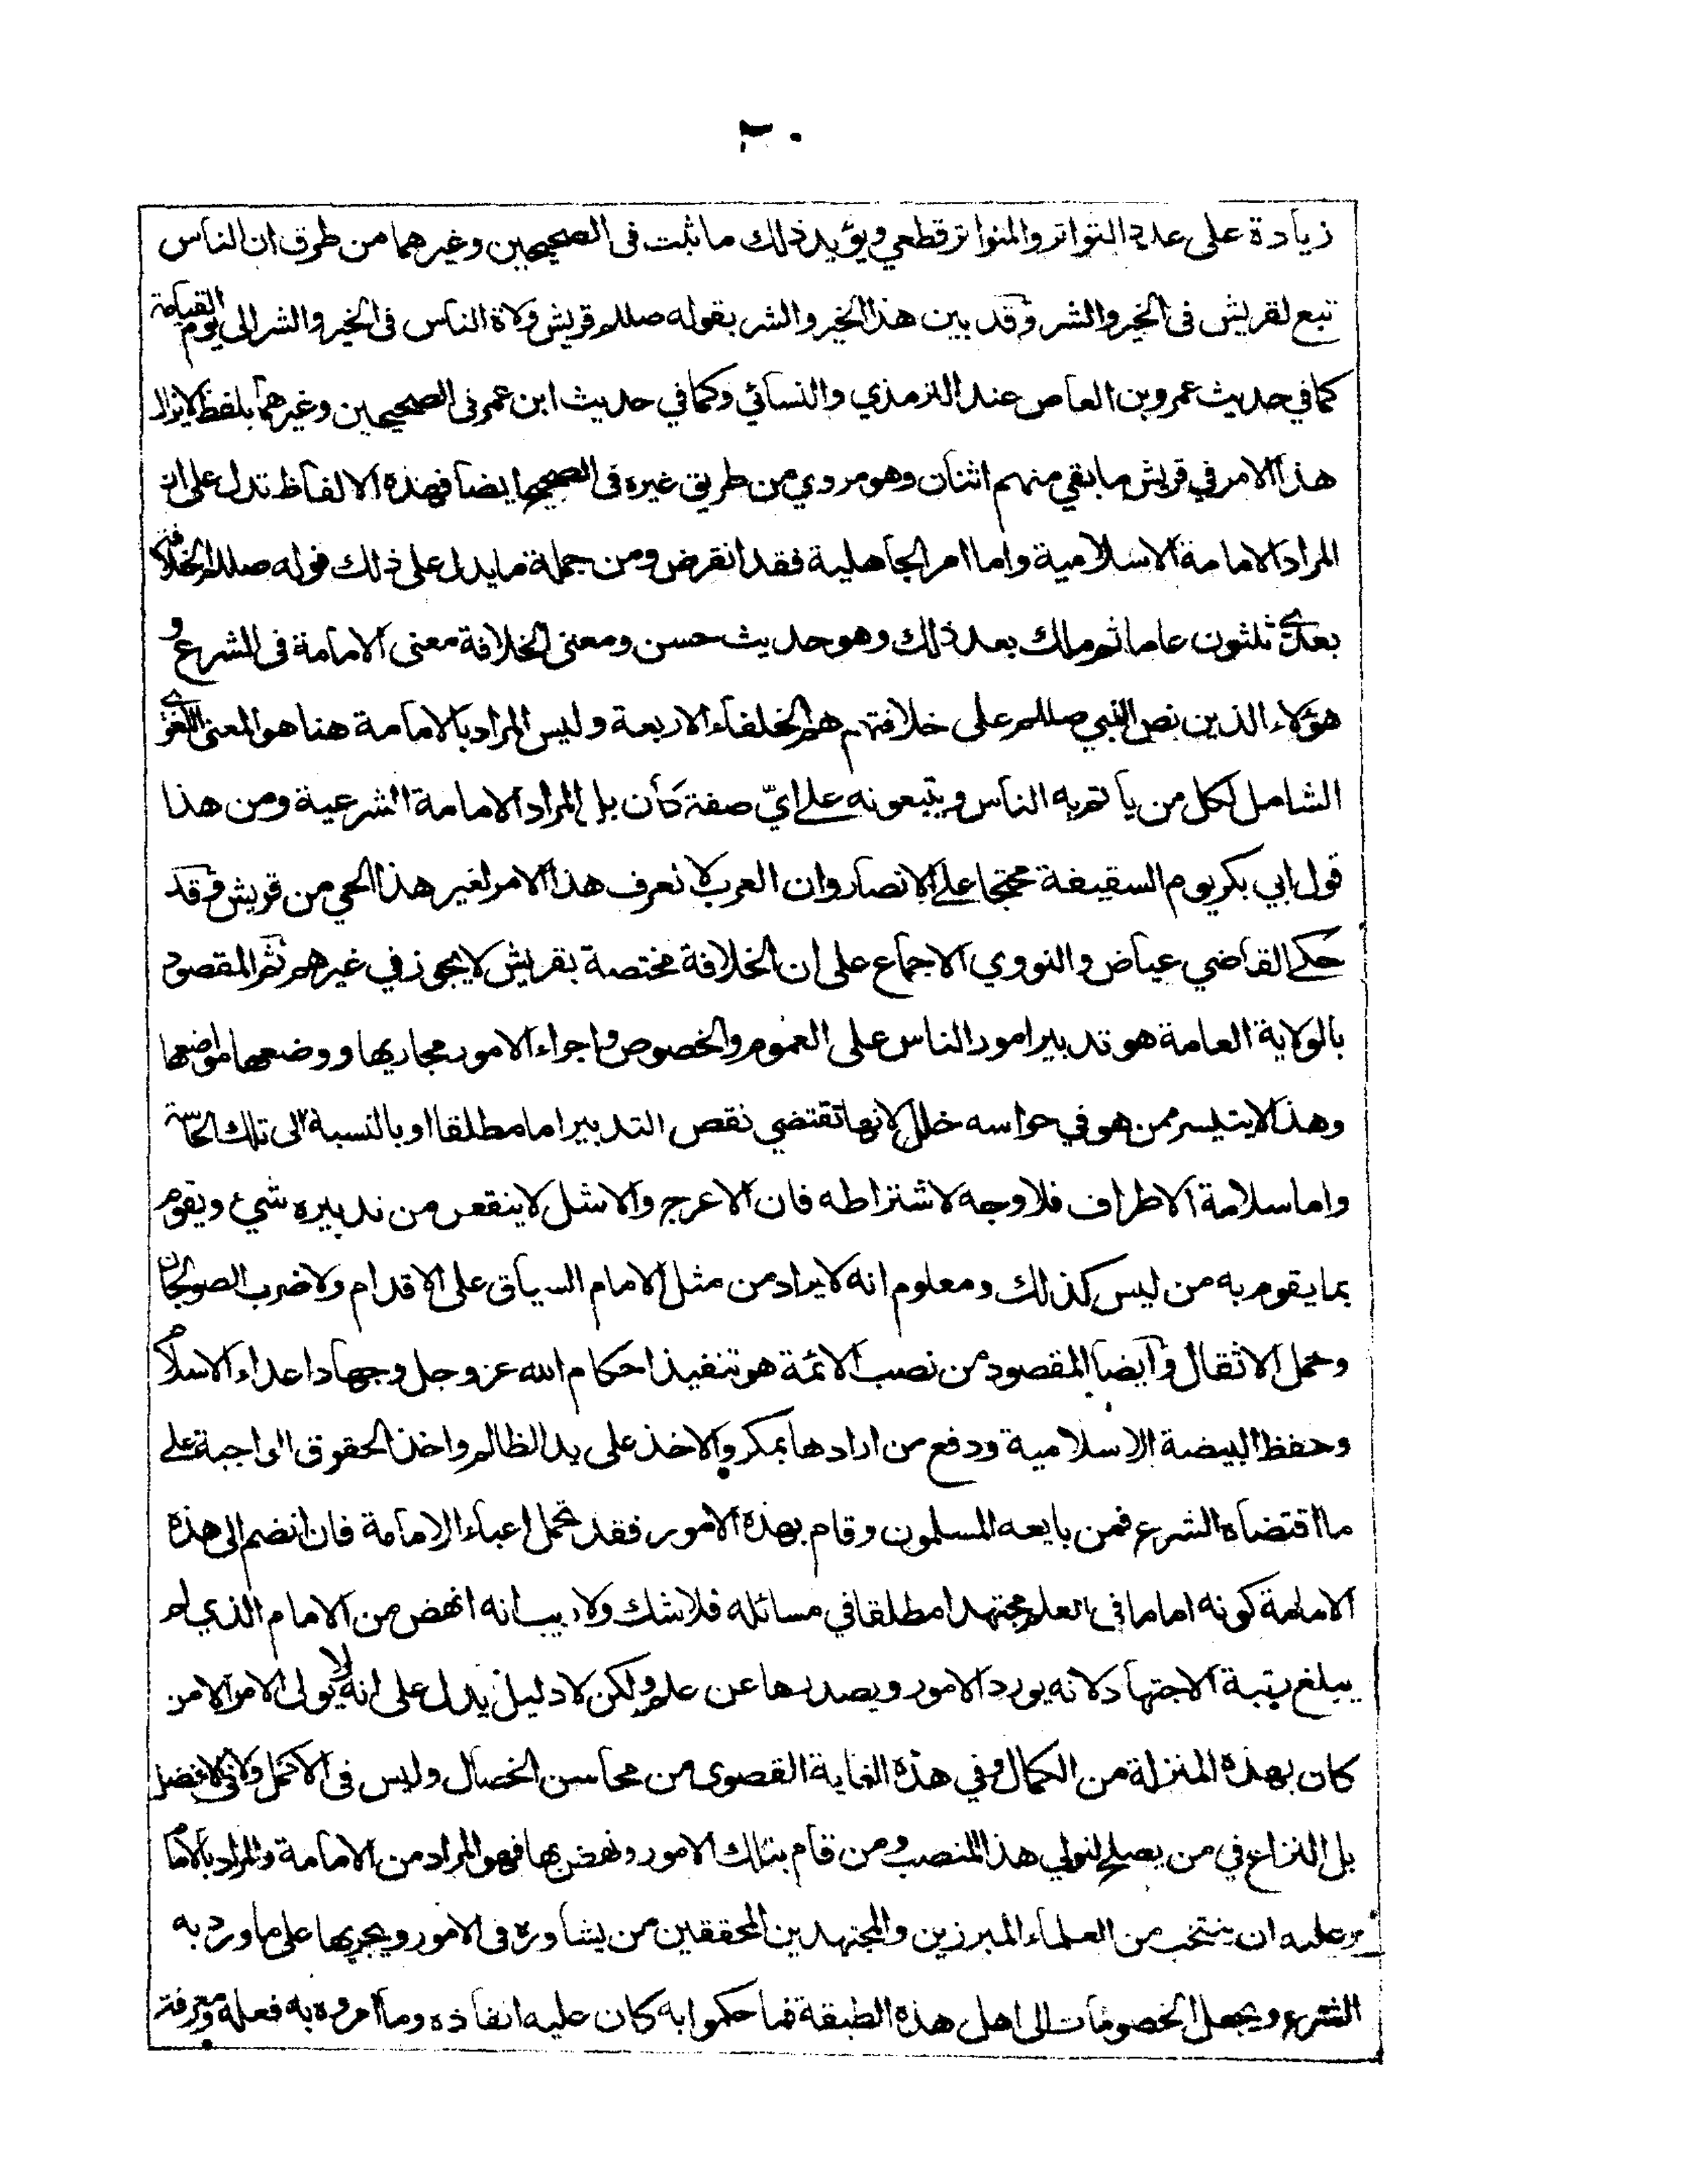 ٣٠
زيادة على عدد التواتر والمتواتر قطعي ويؤيد ذلك ما ثبت فى الصحيحين وغيرهما من طرق ان الناس
تبع لقريش فى الخير والشر وقد بين هذا الخير والشر بقوله صللم قريش ولاة الناس فى الخير والشر الى يوم القيامة
كما في حديث عمرو بن العاص عند الترمذي والنسائي وكما في حديث ابن عمر فى الصحيحين وغيرهما بلفظ لا يزال
هذا الامر في قريش ما بقي منهم اثنان وهو مروي من طريق غيره فى الصحيح ايضا فهذه الالفاظ تدل على ان
المراد الامامة الاسلامية واما امر الجاهلية فقد انقرض ومن جملة ما يدل على ذلك قوله صللم الخلافة
بعدي ثلثون عاما ثم ملك بعد ذلك وهو حديث حسن ومعنى الخلافة معنى الامامة فى الشرع و
هؤلاء الذين نص النبي صللم على خلافتهم هم الخلفاء الاربعة وليس المراد بالامامة هنا هو المعنى اللغوي
الشامل لكل من يأتم به الناس ويتبعونه على ايّ صفة كأن بل المراد الامامة الشرعية ومن هذا
قول ابي بكر يوم السقيفة محتجا على الانصار وان العرب لا نعرف هذا الامر لغير هذا الحي من قريش وقد
حكى القاضي عياض والنووي الاجماع على ان الخلافة مختصة بقريش لا يجوز في غيرهم ثم المقصود
بالولاية العامة هو تدبير امور الناس على العموم والخصوص واجراء الامور مجاريها ووضعها مواضعها
وهذا لا يتيسر ممن هو في حواسه خلل لانها تقتضي نقص التدبير اما مطلقا او بالنسبة الى تلك الحاسة
واما سلامة الاطراف فلا وجه لاشتراطه فان الاعرج والاشل لا ينقص من تدبيره شيء ويقوم
بما يقوم به من ليس كذلك ومعلوم انه لا يراد من مثل الامام السباق على الاقدام ولا ضرب الصولجان
وحمل الاثقال وايضا المقصود من نصب الائمة هو تنفيذ احكام الله عز وجل وجهاد اعداء الاسلام
وحفظ البيضة الاسلامية ودفع من ارادها بمكر والاخذ على يد الظالم واخذ الحقوق الواجبة على
ما اقتضاه الشرع فمن بايعه المسلمون وقام بهذه الامور فقد تحمل اعباء الامامة فان انضم الى هذه
الامامة كونه اماما فى العلم مجتهدا مطلقا في مسائله فلا شك ولا ريب انه انهض من الامام الذي لم
يبلغ رتبة الاجتهاد لانه يورد الامور ويصدرها عن علم ولكن لا دليل يدل على انه لا يولى الامر الا من
كان بهذه المنزلة من الكمال وفي هذه الغاية القصوى من محاسن الخصال وليس فى الاكمل ولا فى الافضل
بل النزاع في من يصلح لتولي هذا المنصب ومن قام بتلك الامور ونهض بها فهو المراد من الامامة والمراد بالامام
وعليه ان ينتخب من العلماء المبرزين والمجتهدين المحققين من يشاوره فى الامور ويجريها على ما ورد به
الشرع ويجعل الخصومات الى اهل هذه الطبقة فما حكموا به كان عليه انفاذه وما امروه به فعله ومعرفة